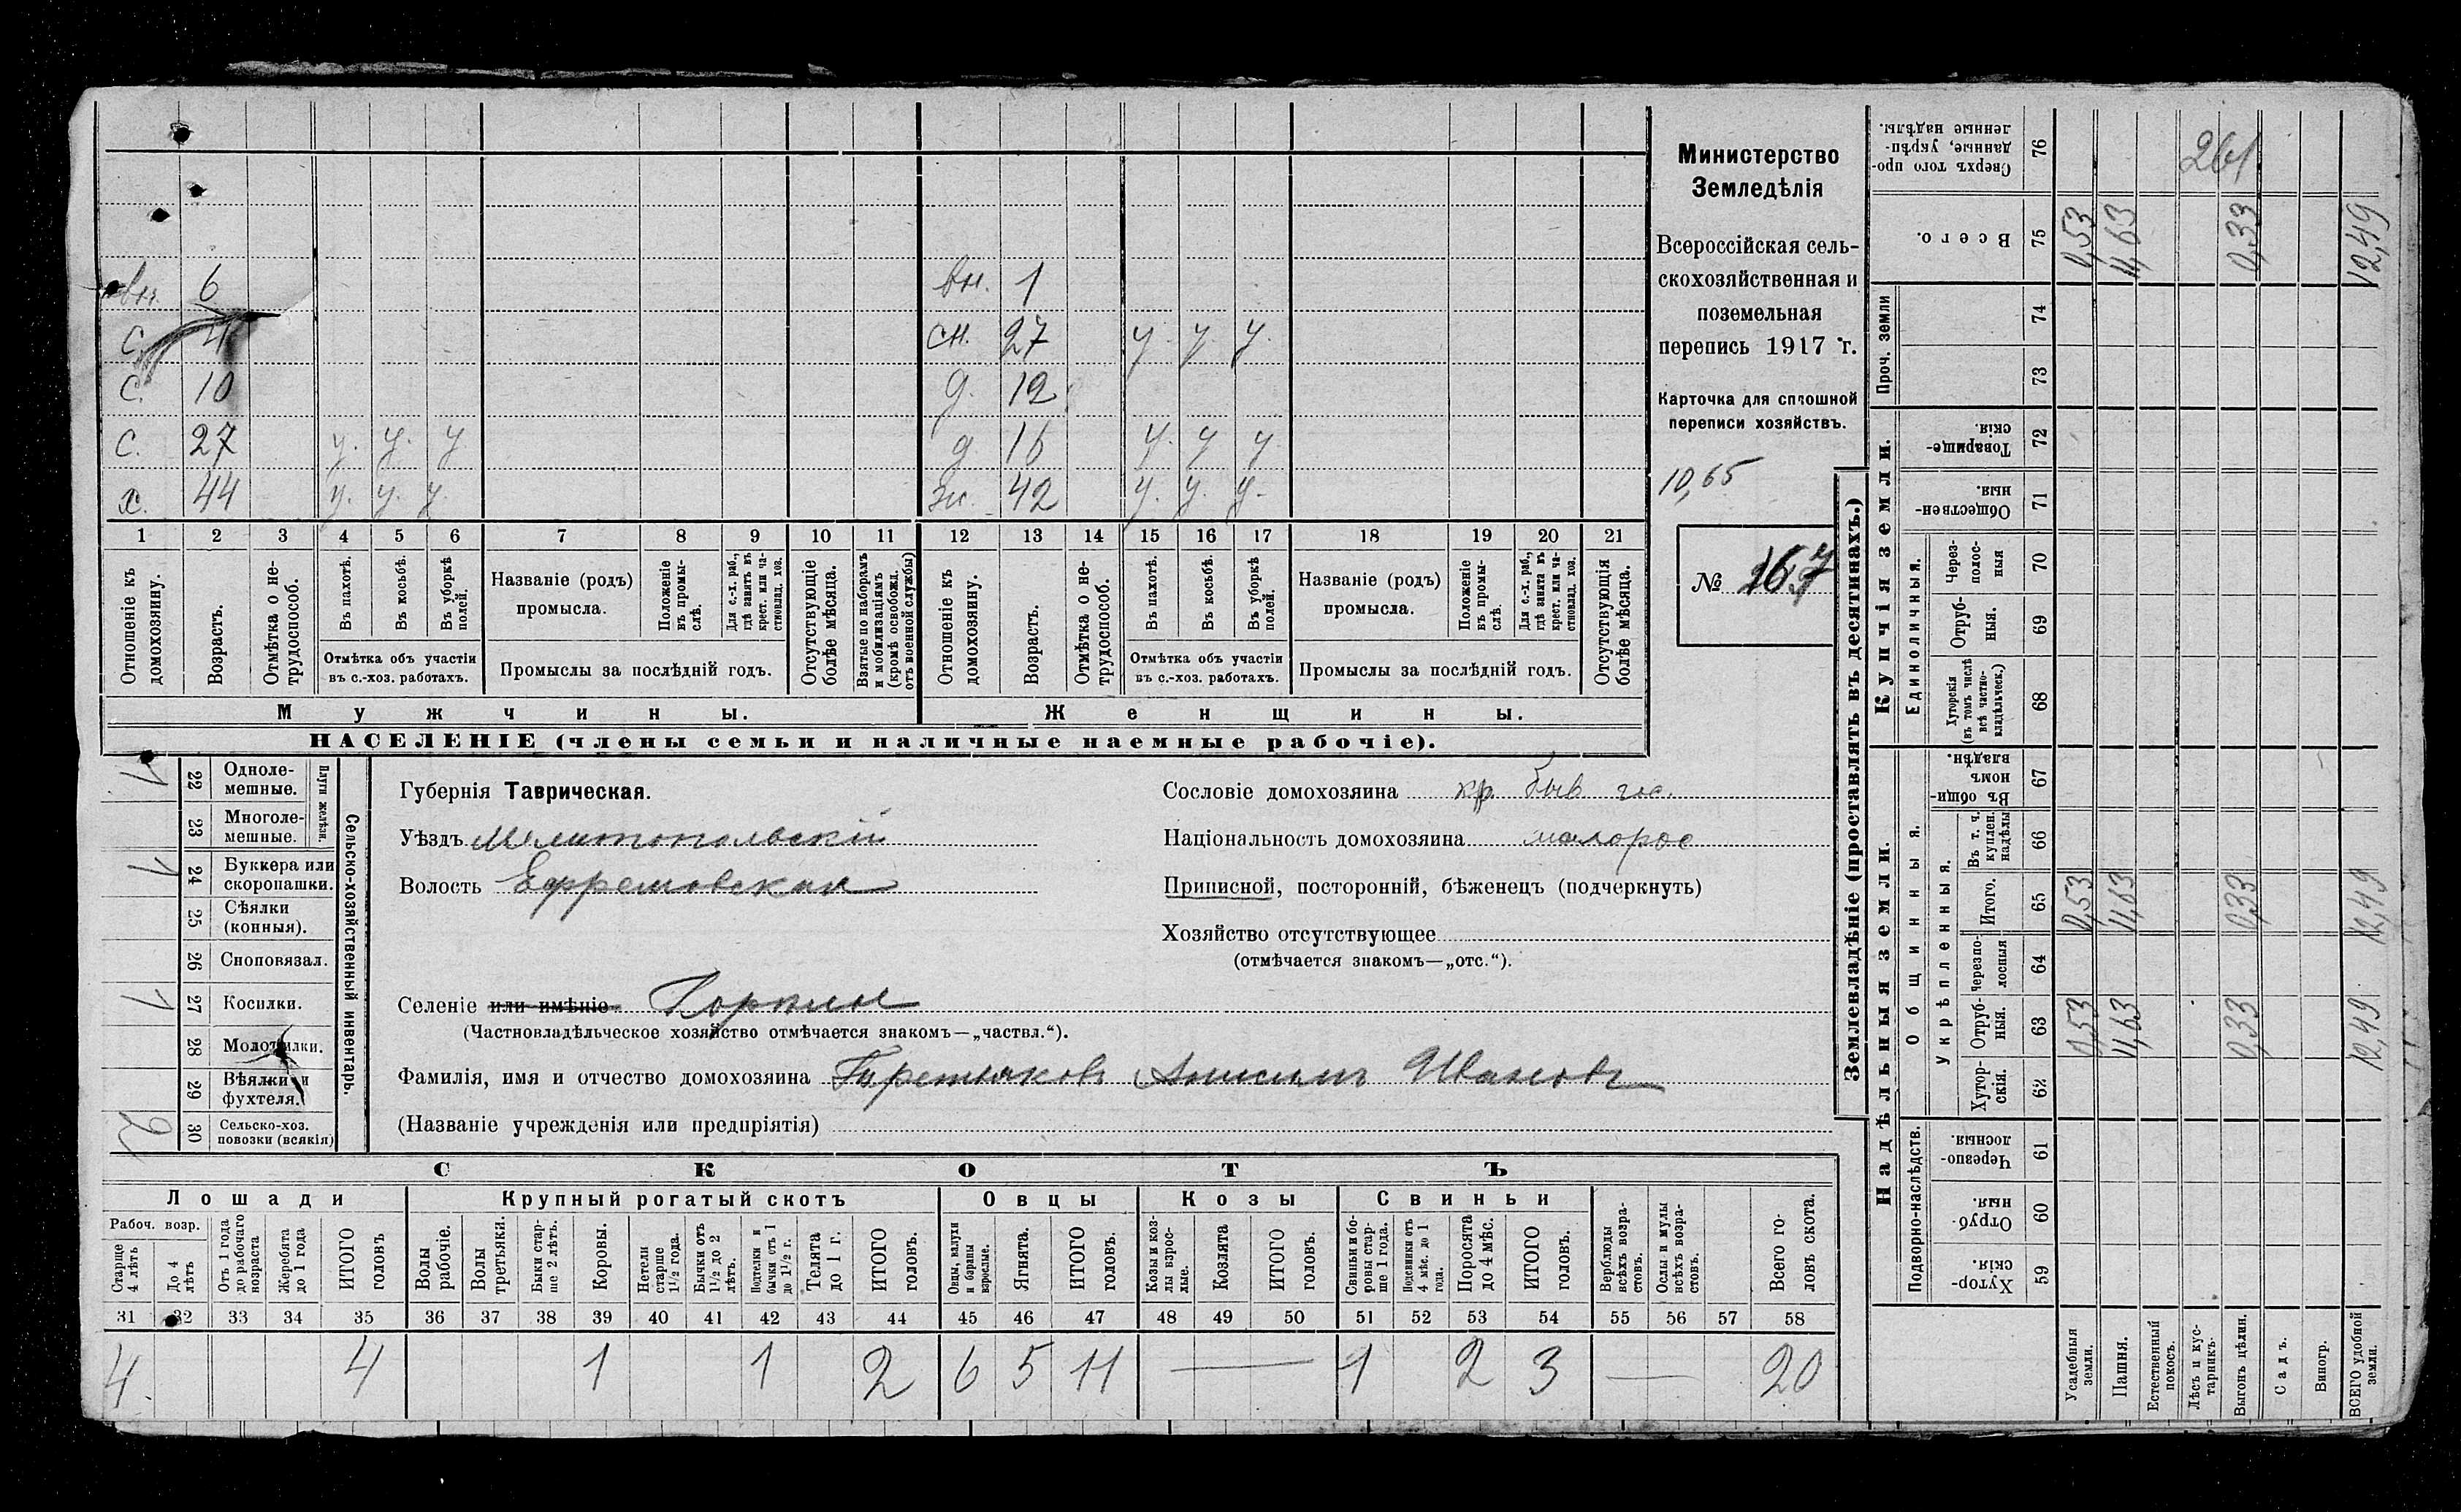 вн. 6
с. 4
с. 10
с. 27 у. у. у
х. 44 у. у. у.
вн. 1
сн. 27 у. у. у.
д. 12
д. 16 у. у у
ж. 42 у. у. у.
1 2 3 4 5 6 7 8 9 10 11 12 13 14 15 16 17 18 19 20 21
Отношеніе къ домохозяину.
Возрастъ.
Отмѣтка о не-
трудоспособ.
Въ пахотѣ.
Въ косьбѣ.
Въ уборкѣ полей.
Отмѣтка объ участіи
въ с.-хоз. работахъ.
Названіе (родъ)
промысла.
Положеніе
въ промы-
слѣ.
Для с.-х. раб.,
гдѣ занятъ въ
крест. или ча-
стновлад. хоз.
Промыслы за послѣдній годъ.
Отсутствующіе
болѣе мѣсяца.
Взятые по наборамъ
и мобилизаціямъ
(кромѣ освобожд.
отъ военной службы)
Отношеніе къ
домохозяину.
Возрастъ.
Отмѣтка о не-
трудоспособ.
Въ пахотѣ.
Въ косьбѣ.
Въ уборкѣ
полей.
Отмѣтка объ участіи
въ с.-хоз. работахъ.
Названіе (родъ)
промысла.
Положеніе
въ промы-
слѣ.
Для с.-х. раб.,
гдѣ занята въ
крест. или ча-
стновлад. хоз.
Промыслы за послѣдній годъ.
Отсутствующія
болѣе мѣсяца.
Мужчины.
Женщины.
НАСЕЛЕНІЕ (члены семьи и наличные наемные рабочіе).
Министерство
Земледѣлія
Всероссійская сель-
скохозяйственная и
поземельная
перепись 1917 г.
Карточка для сплошной
переписи хозяйствъ.
10,65
№ 167
1 22 Одноле-
мешные.
23 Многоле-
мешные.
Плуги желѣзн.
1 24 Буккера или
скоропашки.
25 Сѣялки
(конныя).
26 Сноповязал.
1 27 Косилки.
28 Молотилки.
29 Вѣялки и
фухтеля.
2 30 Сельско-хоз.
повозки (всякія)
Сельско-хозяйственный инвентарь.
Губернія Таврическая.
Уѣздъ Мелитопольскій
Волость Ефремовская
Селеніе или имѣніе
(Частновладѣльческое хозяйство отмѣчается знакомъ—„частвл.“).
Фамилія, имя и отчество домохозяина Третьяковъ Анисимъ Ивановъ
(Названіе учрежденія или предпріятія)
Сословіе домохозяина кр быв гос.
Національность домохозяина малорос
Приписной, посторонній, бѣженецъ (подчеркнуть)
Хозяйство отсутствующее
(отмѣчается знакомъ—„отс.“).
СКОТЪ
Лошади
Крупный рогатый скотъ
Овцы
Козы
Свиньи
Рабоч. возр.
Старше
4 лѣтъ
До 4
лѣтъ
Отъ 1 года
до рабочаго
возраста
Жеребята
до 1 года
ИТОГО
головъ
Волы
рабочіе.
Волы
третьяки.
Быки стар-
ше 2 лѣтъ.
Коровы.
Нетели
старше
1½ года.
Бычки отъ
1½ до 2
лѣтъ.
Подтелки и
бычки отъ 1
до 1½ г.
Телята
до 1 г.
ИТОГО
головъ.
Овцы, валухи
и бараны
взрослые.
Ягнята.
ИТОГО
головъ.
Козы и коз-
лы взрос-
лые.
Козлята
ИТОГО
головъ.
Свиньи и бо-
ровы стар-
ше 1 года.
Подсвинки отъ
4 мѣс. до 1
года.
Поросята
до 4 мѣс.
ИТОГО
головъ.
Верблюды
всѣхъ возра-
стовъ.
Ослы и мулы
всѣхъ возра-
стовъ.
Всего го-
ловъ скота.
31 32 33 34 35 36 37 38 39 40 41 42 43 44 45 46 47 48 49 50 51 52 53 54 55 56 57 58
4. 4 1 1 2 6 5 11 — 1 2 3 — 20
Землевладѣніе (проставлять въ десятинахъ.)
Купчія земли.
Надѣльныя земли.
Сверхъ того про-
данные, укрѣп-
ленные надѣлы.
76
261
Всего.
75 0,53 11,63 0,33 12,49
Проч. земли
74
73
Товарище-
скія.
72
Обществен-
ныя.
71
Единоличныя.
Через-
полос-
ныя
70
Отруб-
ныя.
69
Хуторскія
(въ томъ числѣ
всѣ частно-
владѣльческ.)
68
Общинныя.
Въ общин-
номъ
владѣн.
67
Укрѣпленныя.
Въ т. ч.
куплен.
надѣлы
66
Итого.
65 0,53 11,63 0,33 12,49
Черезпо-
лосныя
64
Отруб-
ныя.
63 0,53 11,63 0,33 12,49
Хутор-
скія.
62
Подворно-наслѣдств.
Черезпо-
лосныя.
61
Отруб-
ныя.
60
Хутор-
скія.
59
Усадебныя
земли.
Пашня.
Естественный
покосъ.
Лѣсъ и кус-
тарникъ.
Выгонъ цѣлин.
Садъ.
Виногр.
ВСЕГО удобной
земли.